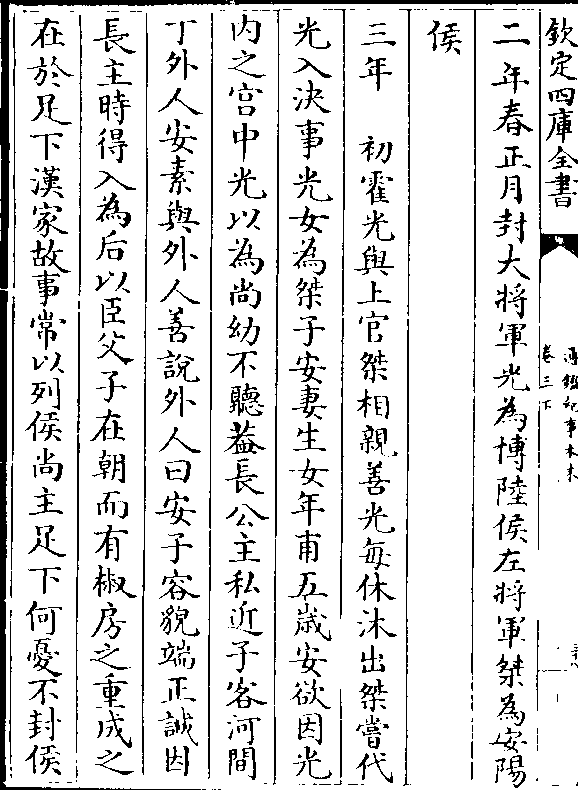 欽定四庫全書
通鑑紀事本末
卷三下
二年春正月封大將軍光為博陸侯左將軍桀為安陽
侯
三年　初霍光與上官桀相親善光每休沐出桀嘗代
光入決事光女為桀子安妻生女年甫五歲安欲因光
内之宫中光以為尚幼不聽葢長公主私近子客河間
丁外人安素與外人善說外人曰安子容貌端正誠因
長主時得入為后以臣父子在朝而有椒房之重成之
在於足下漢家故事常以列侯尚主足下何憂不封侯